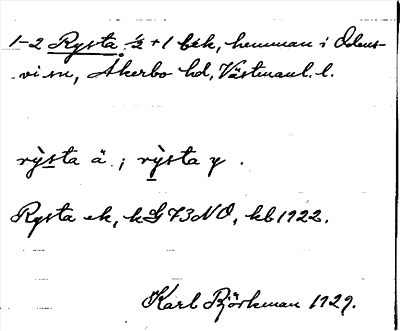 1-2 Rysta ½ + 1 bek, hemman i Odens-
vi sn, Åkerbo hd, Västmanl. l.
rỳsta ä. ; rỳsta y .
Rysta ek, k G 73 NO, kb 1922.
Karl Björkman 1929.